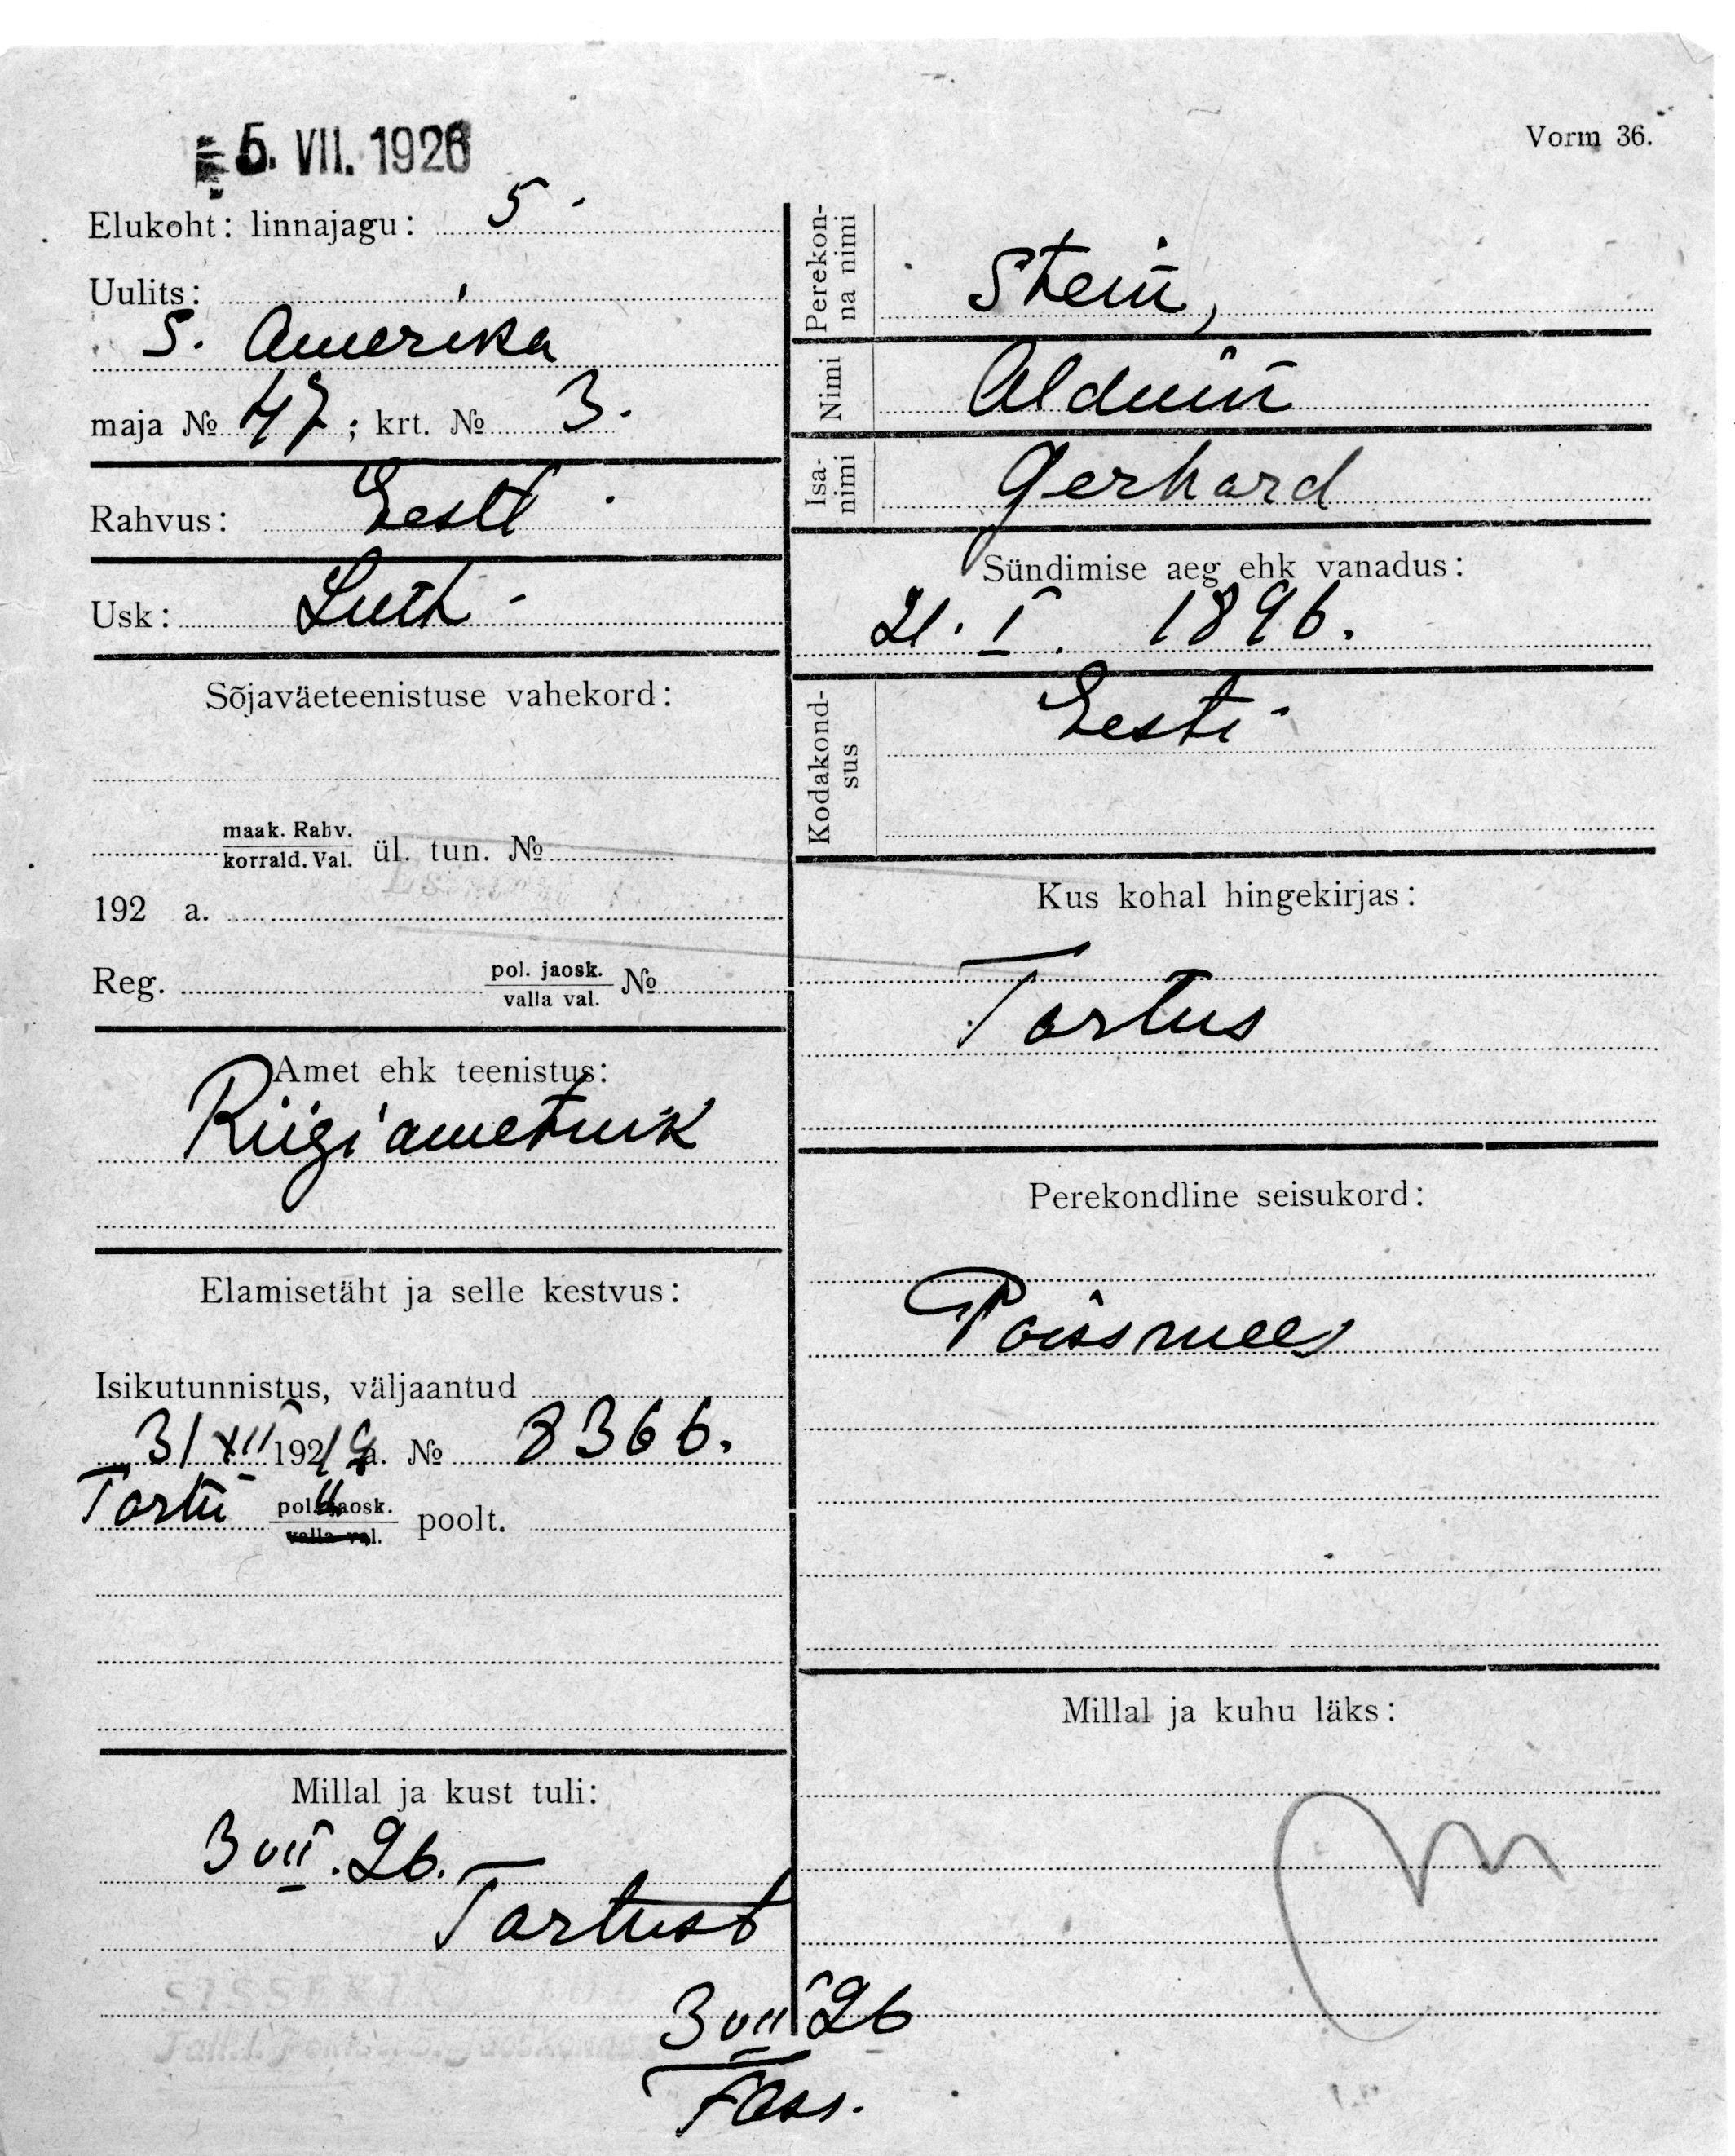 5. VII. 1926
Vorm 36.
Elukoht: linnajagu: 5
Uulits:
S. Amerika
maja № 47; krt. № 3.
Rahvus: Eesti
Usk: Luth
Sõjaväeteenistuse vahekord:
maak. Rahv.
korrald. Val. ül. tun. №
192 a.
Reg. pol. jaosk.
valla val. №
Amet ehk teenistus:
Riigiametnik
Elamisetäht ja selle kestvus:
Isikutunnistus, väljaantud
31 XII 1921 a. № 8366.
Tartu pol. jaosk.
valla val. poolt.
Millal ja kust tuli:
3 VII. 26.
Tartust
Perekon-
na nimi
Stein,
Nimi
Alduin
Isa-
nimi
Gerhard
Sündimise aeg ehk vanadus:
21. I. 1896.
Kodakond-
sus
Eesti
Kus kohal hingekirjas:
Tartus
Perekondline seisukord:
Poissmees
Millal ja kuhu läks:
3 VII 26